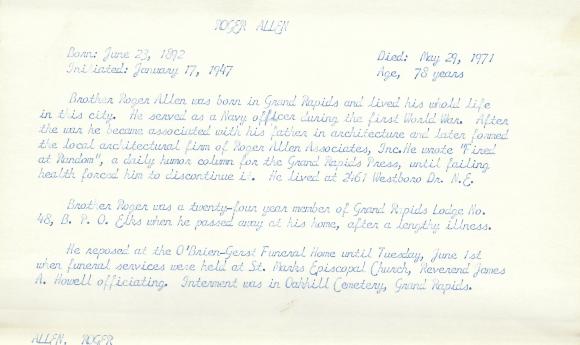 ROGER ALLEN
Born: June 23, 1892 Died: May 29, 1971
Initiated: January 17, 1947 Age, 78 years
Brother Roger Allen was born in Grand Rapids and lived his whold life
in this city. He served as a Navy officer during the first World War. After
the war he became associated with his father in architecture and later formed
the local architectural firm of Roger Allen Associates, Inc.He wrote "Fired
at Random", a daily humor column for the Grand Rapids Press, until failing
health forced him to discontinue it. He lived at 2461 Westboro Dr. N.E.
Brother Roger was a twenty-four year member of Grand Rapids Lodge No.
48, B. P. O. Elks when he passed away at his home, after a lengthy illness.
He reposed at the O'Brien-Gerst Funeral Home until Tuesday, June 1st
when funeral services were held at St. Marks Episcopal Church, Reverend James
A. Howell officiating. Interment was in Oakhill Cemetery, Grand Rapids.
ALLEN, ROGER